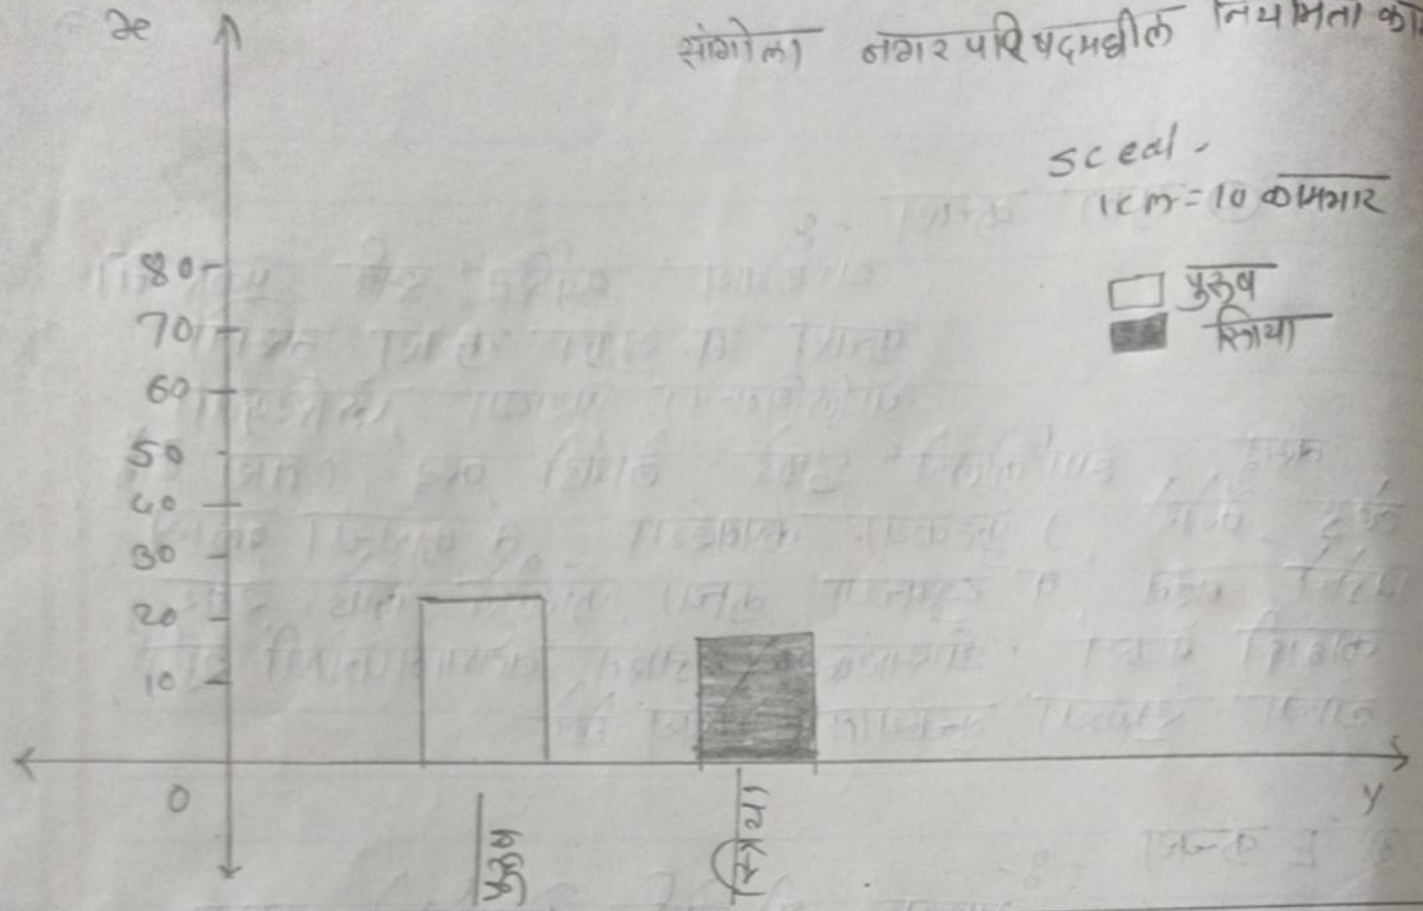 x
सांगोला नगरपरिषदमधील नियमित
sceal -
1cm = 10 कामगार
पुरूष
स्त्रिया
80
70
60
50
40
30
20
10
0
y
पुरूष
स्त्रिया